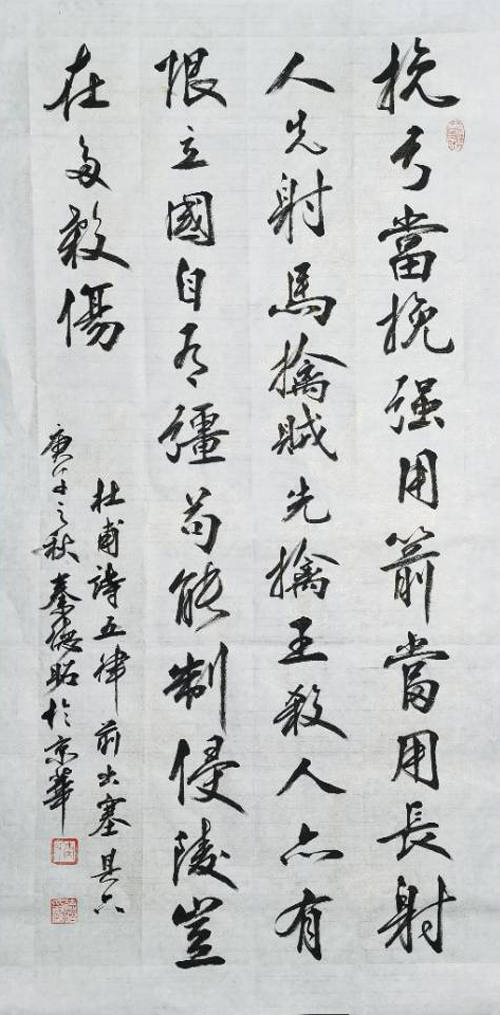 挽弓當挽强用箭當用長射
人先射馬擒賊先擒王殺人亦有
限立國自有疆苟能制侵陵豈
在多殺傷
杜甫詩五律前出塞其六
庚之秋秦德昭於京華